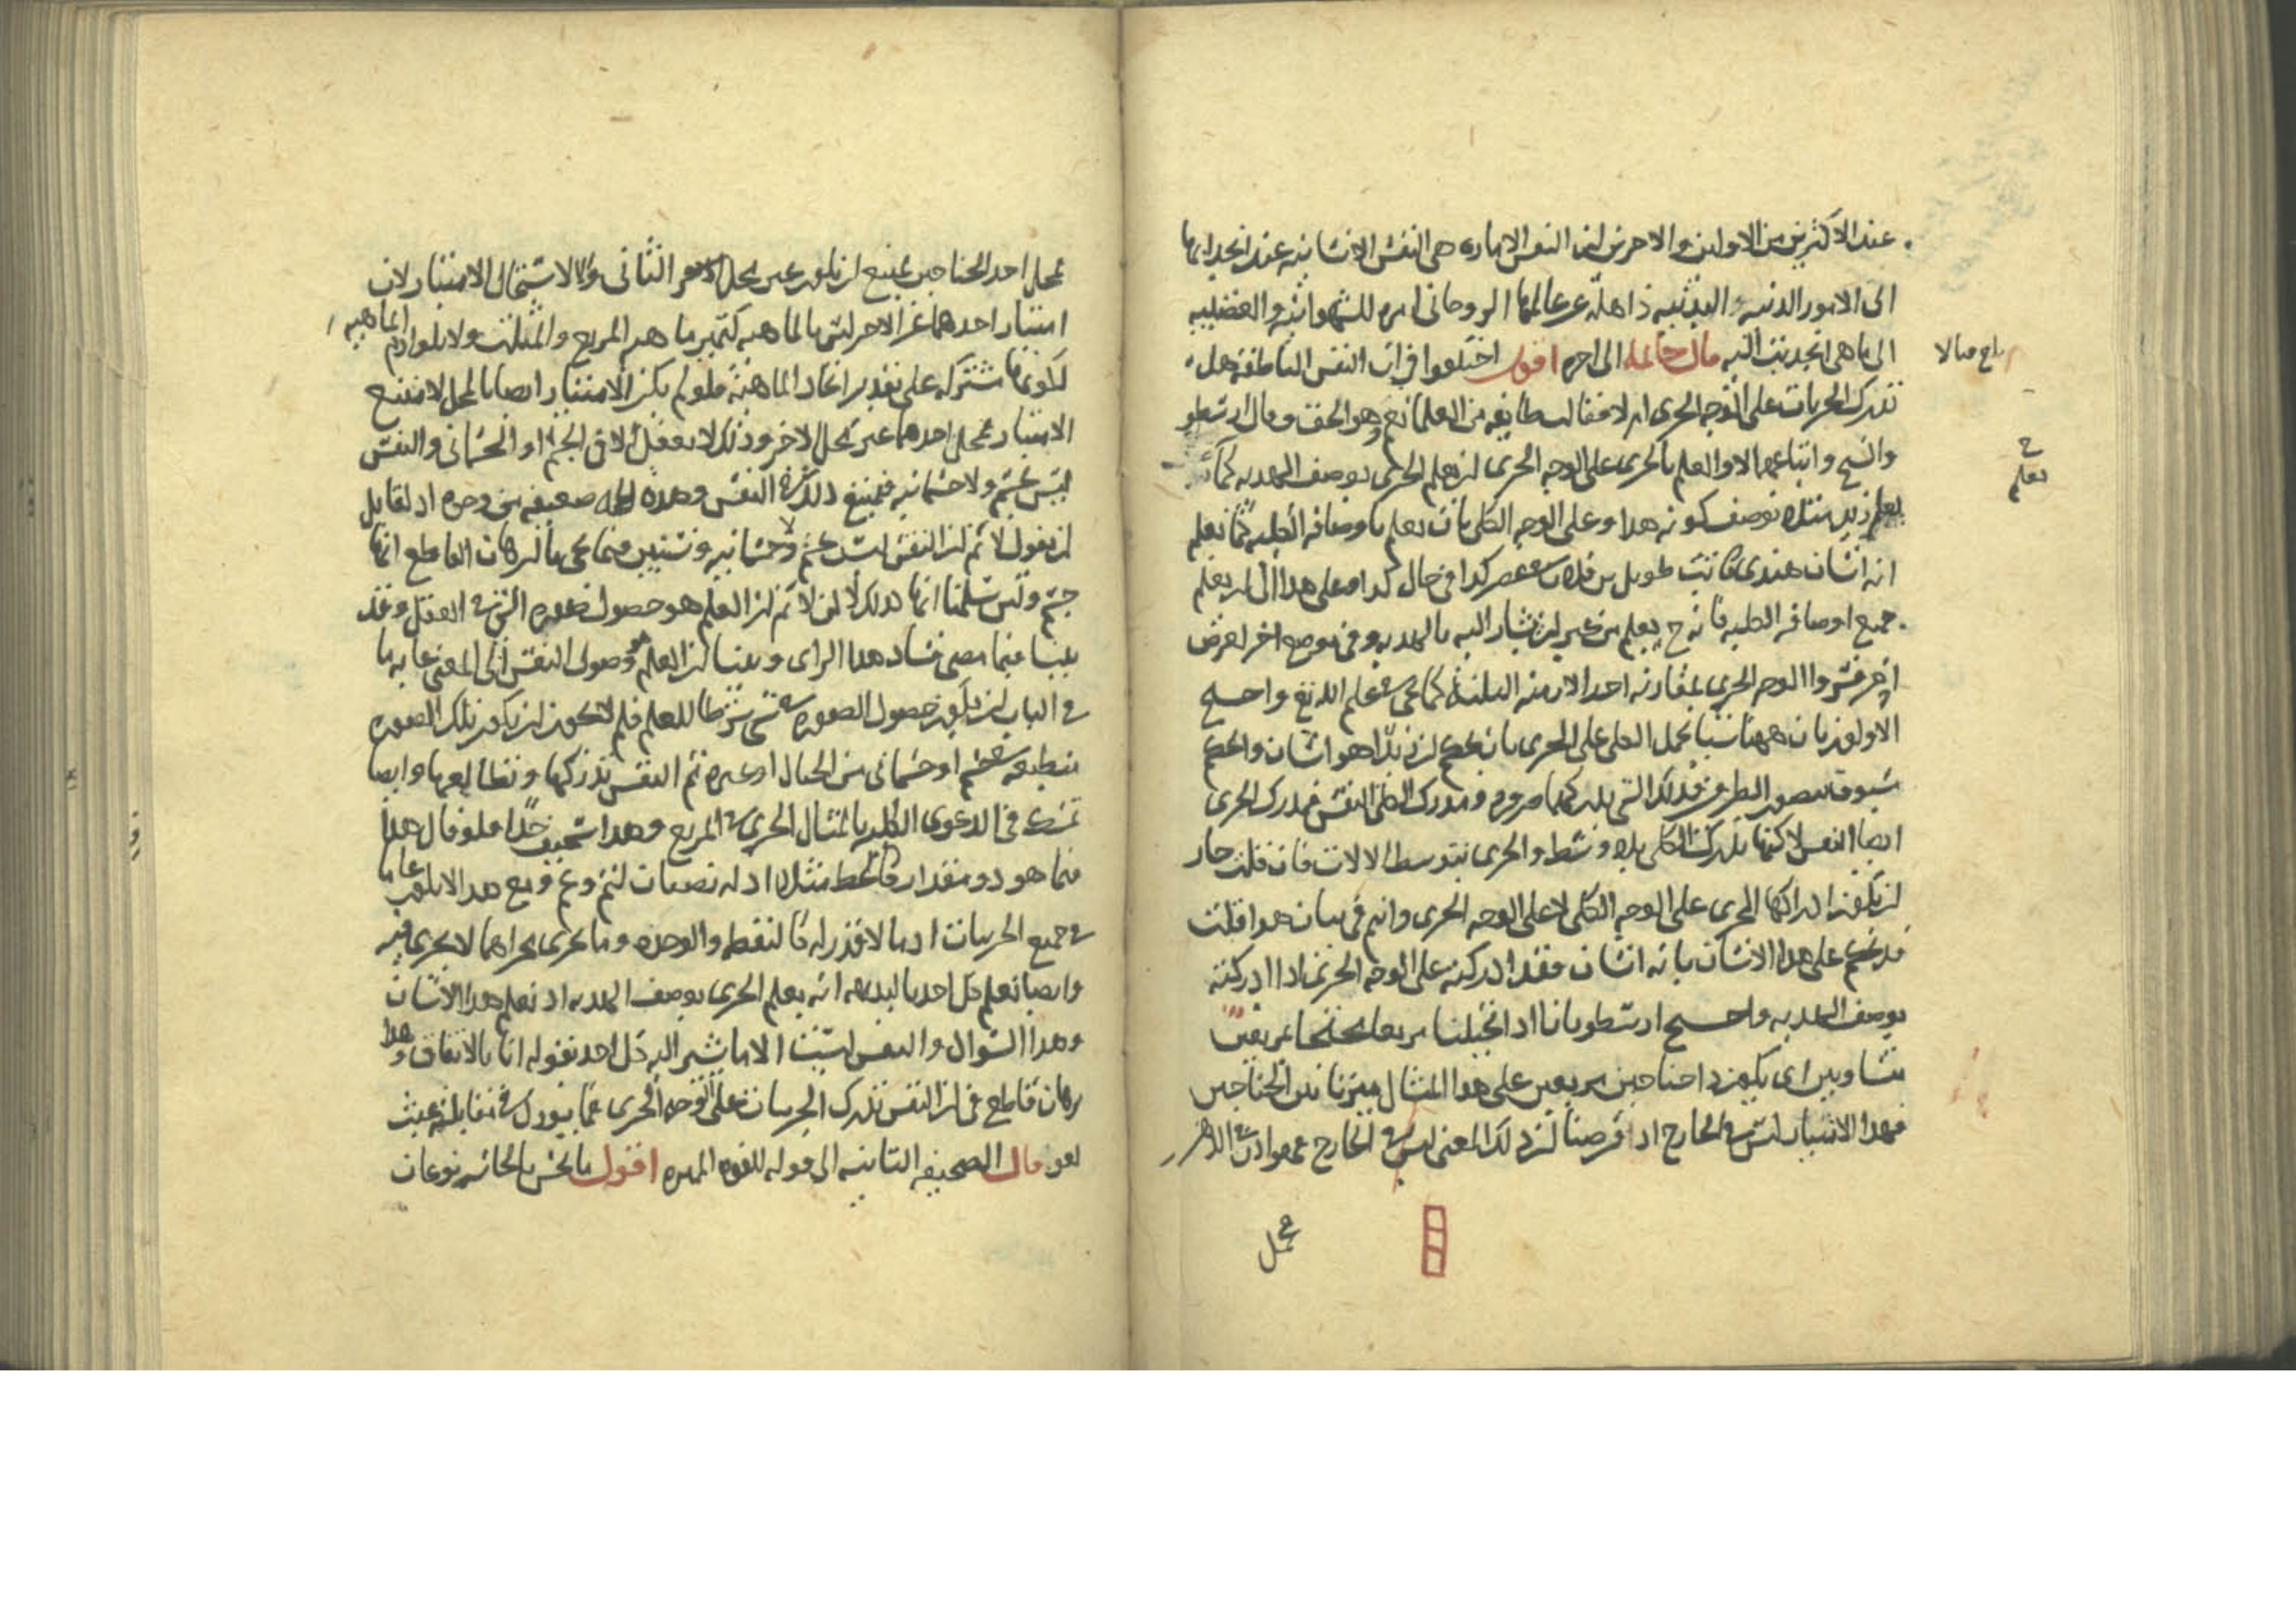 عند الاكثرين من الاولين والاخرين ان النفس الامارة هي النفس الانسانيه عند انجذابها
الى الامور الدنيه البدنيه ذاهلة عن عالمها الروحاني امره للشهوانيه والغضبيه
الى ما هي انجذبت اليه قال خاتمه الى اخره اقول اختلفوا في ان النفس الناطقه هل
تدرك الجزيات على الوجه الجزى ام لا فقالت طايفه من العلما نعم وهو الحق وقال ارسطو
والشيخ واتباعهما لا والعلم بالجزى على الوجه الجزى ان يعلم الجزى بوصف الهذيه كما
يعلم زيد مثلا بوصف كونه هذا وعلى الوجه الكلى بان يعلم باوصافه الكليه كما يعلم
انه انسان هندى كاتب طويل بن فلان كذا في حال كذا وعلى هذا الى ان يعلم
جميع اوصافه الكليه فانه ح يعلم من غير ان يشار اليه بالهذيه وفي موضع اخر لغرض
اخر فسروا الوجه الجزى بمقارنه احد الازمنه الثلثه كما يجى في علم الله تع واحتج
الاولون بان ههنا شيا يحمل الكلى على الجزى بان يحكم ان زيدا هو انسان والحكم
مسبوق بتصور الطرفين فذلك الشى يدركهما ضروره ومدرك الكلى النفس فمدرك الجزى
ايضا النفس لاكنها تدرك الكلى بلا وسط والجزى بتوسط الالات فان قلت جاز
ان يكون ادراكها الجزى على الوجه الكلى لا على الوجه الجزى وانتم في بيان هذا قلت
قد نحكم على هذا الانسان بانه انسان فقد ادركته على الوجه الجزى اذا ادركته
بوصف الهذيه واحتج ارسطو بانا اذا تخيلنا مربعا مجنحا بمربعين
متساويين اى يكون ذا جناحين مربعين على هذا المثال ميزنا بين الجناحين
فهذا الامتياز ليس في الخارج اذ فرضنا ان ذلك المعنى ليس في الخارج فهو اذن في الذهن
محل
بلغ مقابلا
ح
يعلم
محل احد الجناحين يمتنع ان يكون عين محل الثانى والا لاستحال الامتياز لان
امتياز احدهما عن الاخر ليس بالماهيه كتميز ماهيه المربع والمثلث ولا بلوازم الماهيه
لكونها مشتركه على تقدير اتحاد الماهيه فلو لم يكن الامتياز ايضا بالمحل لامتنع
الامتياز فمحل احدهما غير محل الاخر وذلك لا يعقل الا في الجسم او الجسمانى والنفس
ليس بجسم ولا جسمانيه فيمتنع ذلك في النفس وهذه الحجه ضعيفه من وجوه اذ لقايل
ان يقول لا نم ان النفس ليست بجسم ولا جسمانيه وسنبين فيما يجى بالبرهان القاطع انها
جسم ولين سلمنا انها كذلك لاكن لا نم ان العلم هو حصول صوره الشى في العقل وقد
بينا فيما مضى فساد هذا الراى وبينا ان العلم هو وصول النفس الى المعنى غايه ما
في الباب ان يكون حصول الصوره في شى شرطا للعلم فلم لا يجوز ان يكون تلك الصوره
منطبعه في جسم او جسمانى من الخيال او غيره ثم النفس تدركها وتطالعها وايضا
تمسك في الدعوى الكليه بالمثال الجزى في المربع وهذا سخيف جدا فلو قال هذا
فيما هو ذو مقدار كالخط مثلا اذ له نصفان لتم وعم ومع هذا الا يلزم
في جميع الجزيات اذ ما لا قدر له كالنقطه والوحده وما يجرى مجراهما لا يجرى فيه
وايضا نعلم كل احد بالبديهه انه يعلم الجزى بوصف الهذيه اذ نعلم هذا الانسان
وهذا السوال والنفس ليست الا ما يشير اليه كل احد بقوله انا بالاتفاق وهذا
برهان قاطع في ان النفس تدرك الجزيات على الوجه الجزى فما يورد في مقابلته عبث
لغو قال الصحيفه الثانيه الى قوله للقوه المميزه اقول ما يحس بالحاسه نوعان